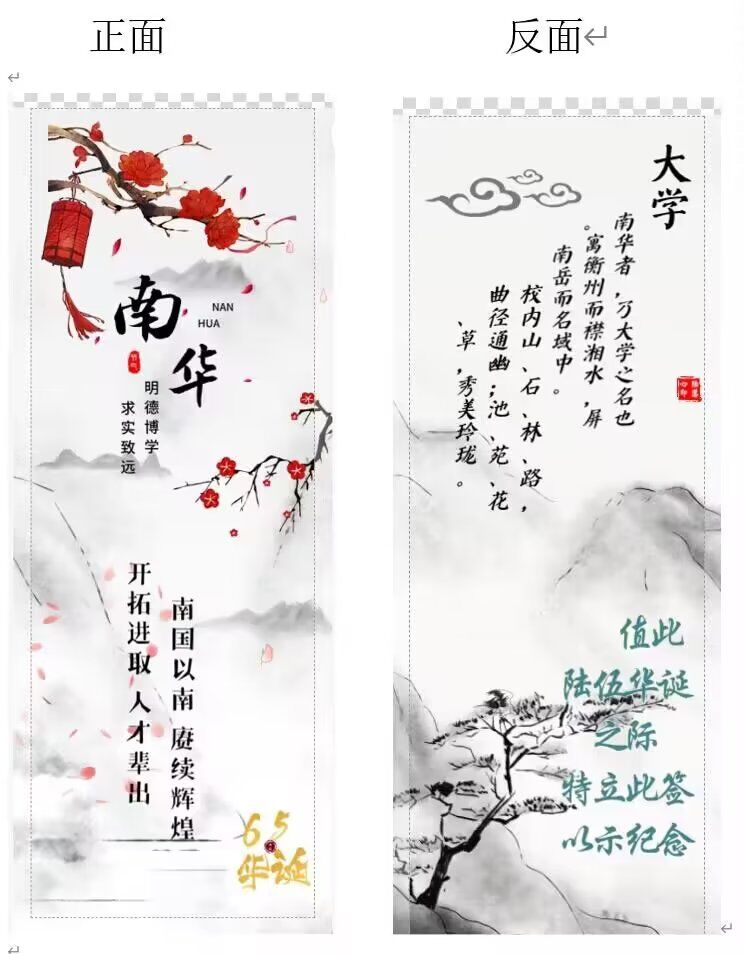 正面
反面
南华
NAN
HUA
明德博学
求实致远
南国以南 赓续辉煌
开拓进取 人才辈出
65
华诞
大学
南华者，乃大学之名也
。寓衡州而襟湘水，屏
南岳而名域中。
校内山、石、林、路，
曲径通幽；池、苑、花
、草，秀美玲珑。
值此
陆伍华诞
之际
特立此签
以示纪念